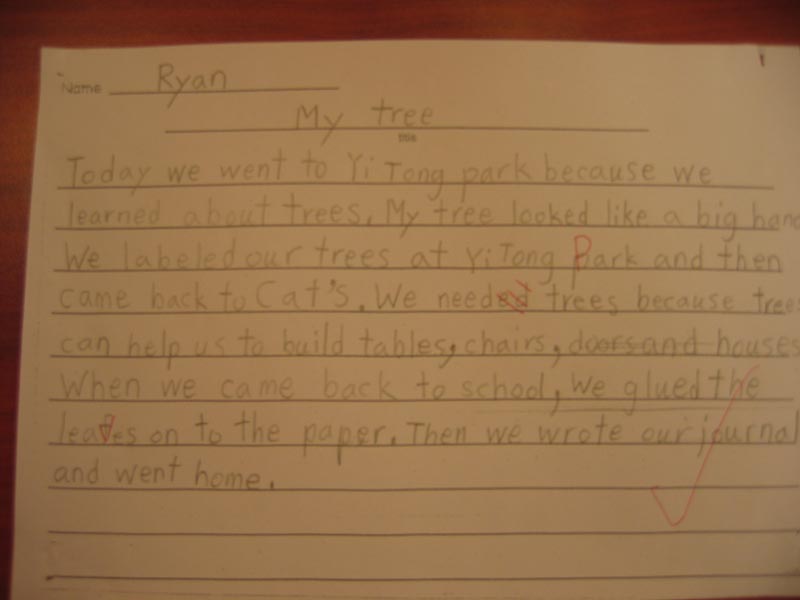 Name Ryan
My tree
title
Today we went to Yi Tong park because we
learned about trees. My tree looked like a big hand
We labeled our trees at Yi Tong Park and then
came back to Cat's. We needed trees because trees
can help us to build tables, chairs, doors and houses
When we came back to school, we glued the
leaves on to the paper. Then we wrote our journal
and went home.